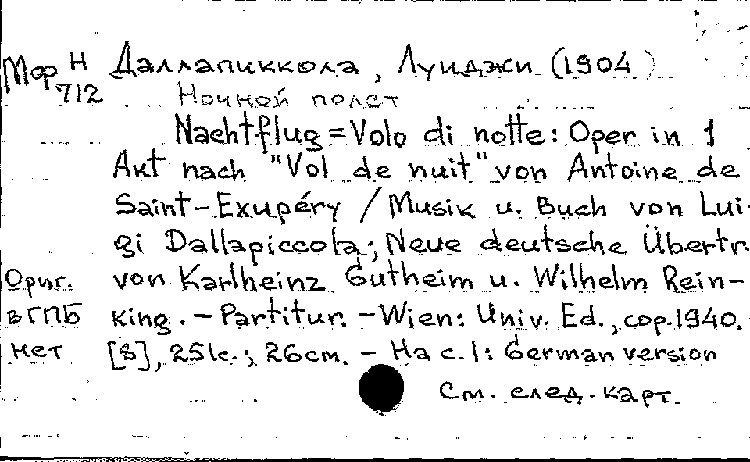 Мф Н Даллапиккола, Луиджи (1904 )
712 Ночной полет
Nachtflug = Volo di notte: Oper in 1
Akt nach "Vol de nuit" von Antoine de
Saint-Exupéry / Musik u. Buch von Lui-
gi Dallapiccola; Neue deutsche Übertr.
Ориг. von Karlheinz Gutheim u. Wilhelm Rein-
в ГПБ king. – Partitur. – Wien: Univ. Ed., cop. 1940.
нет [8], 251 с.; 26 см. – На с. 1: German version
См. след. карт.